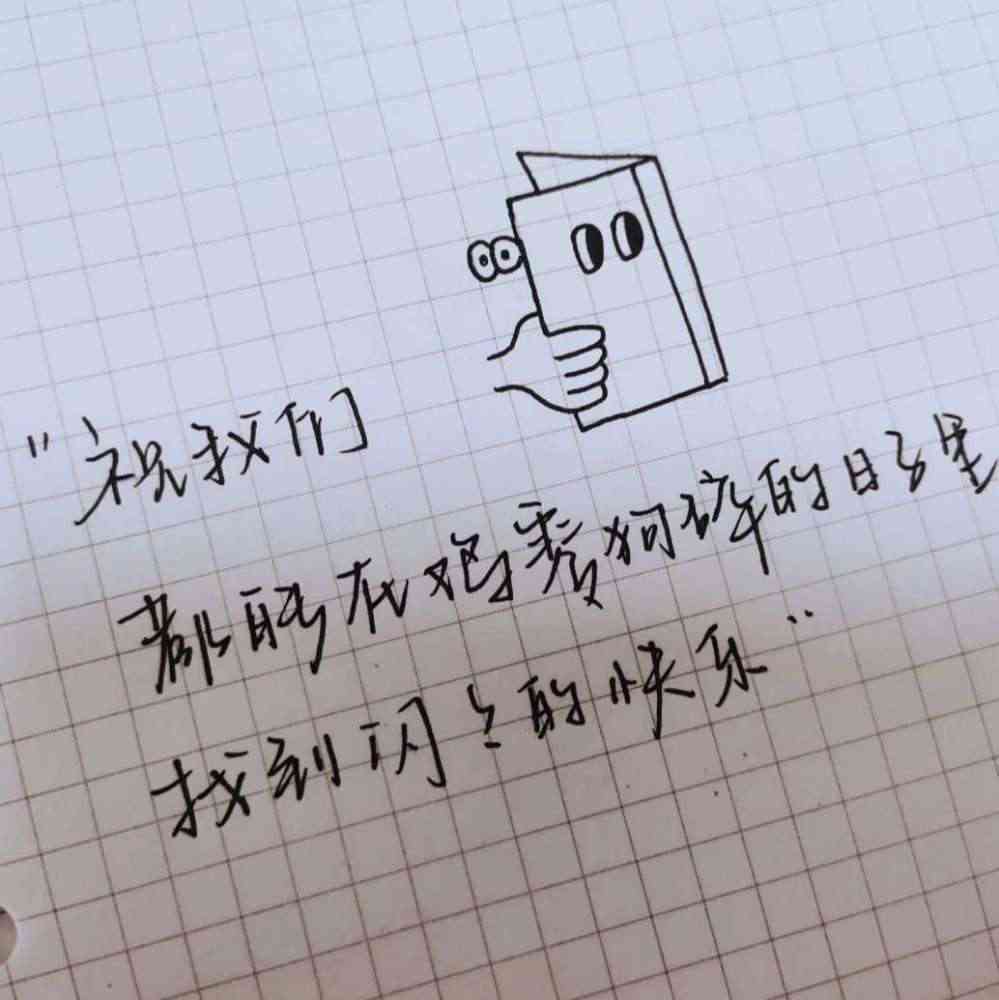 "祝我们
都能在鸡零狗碎的日子里
找到闪闪的快乐"